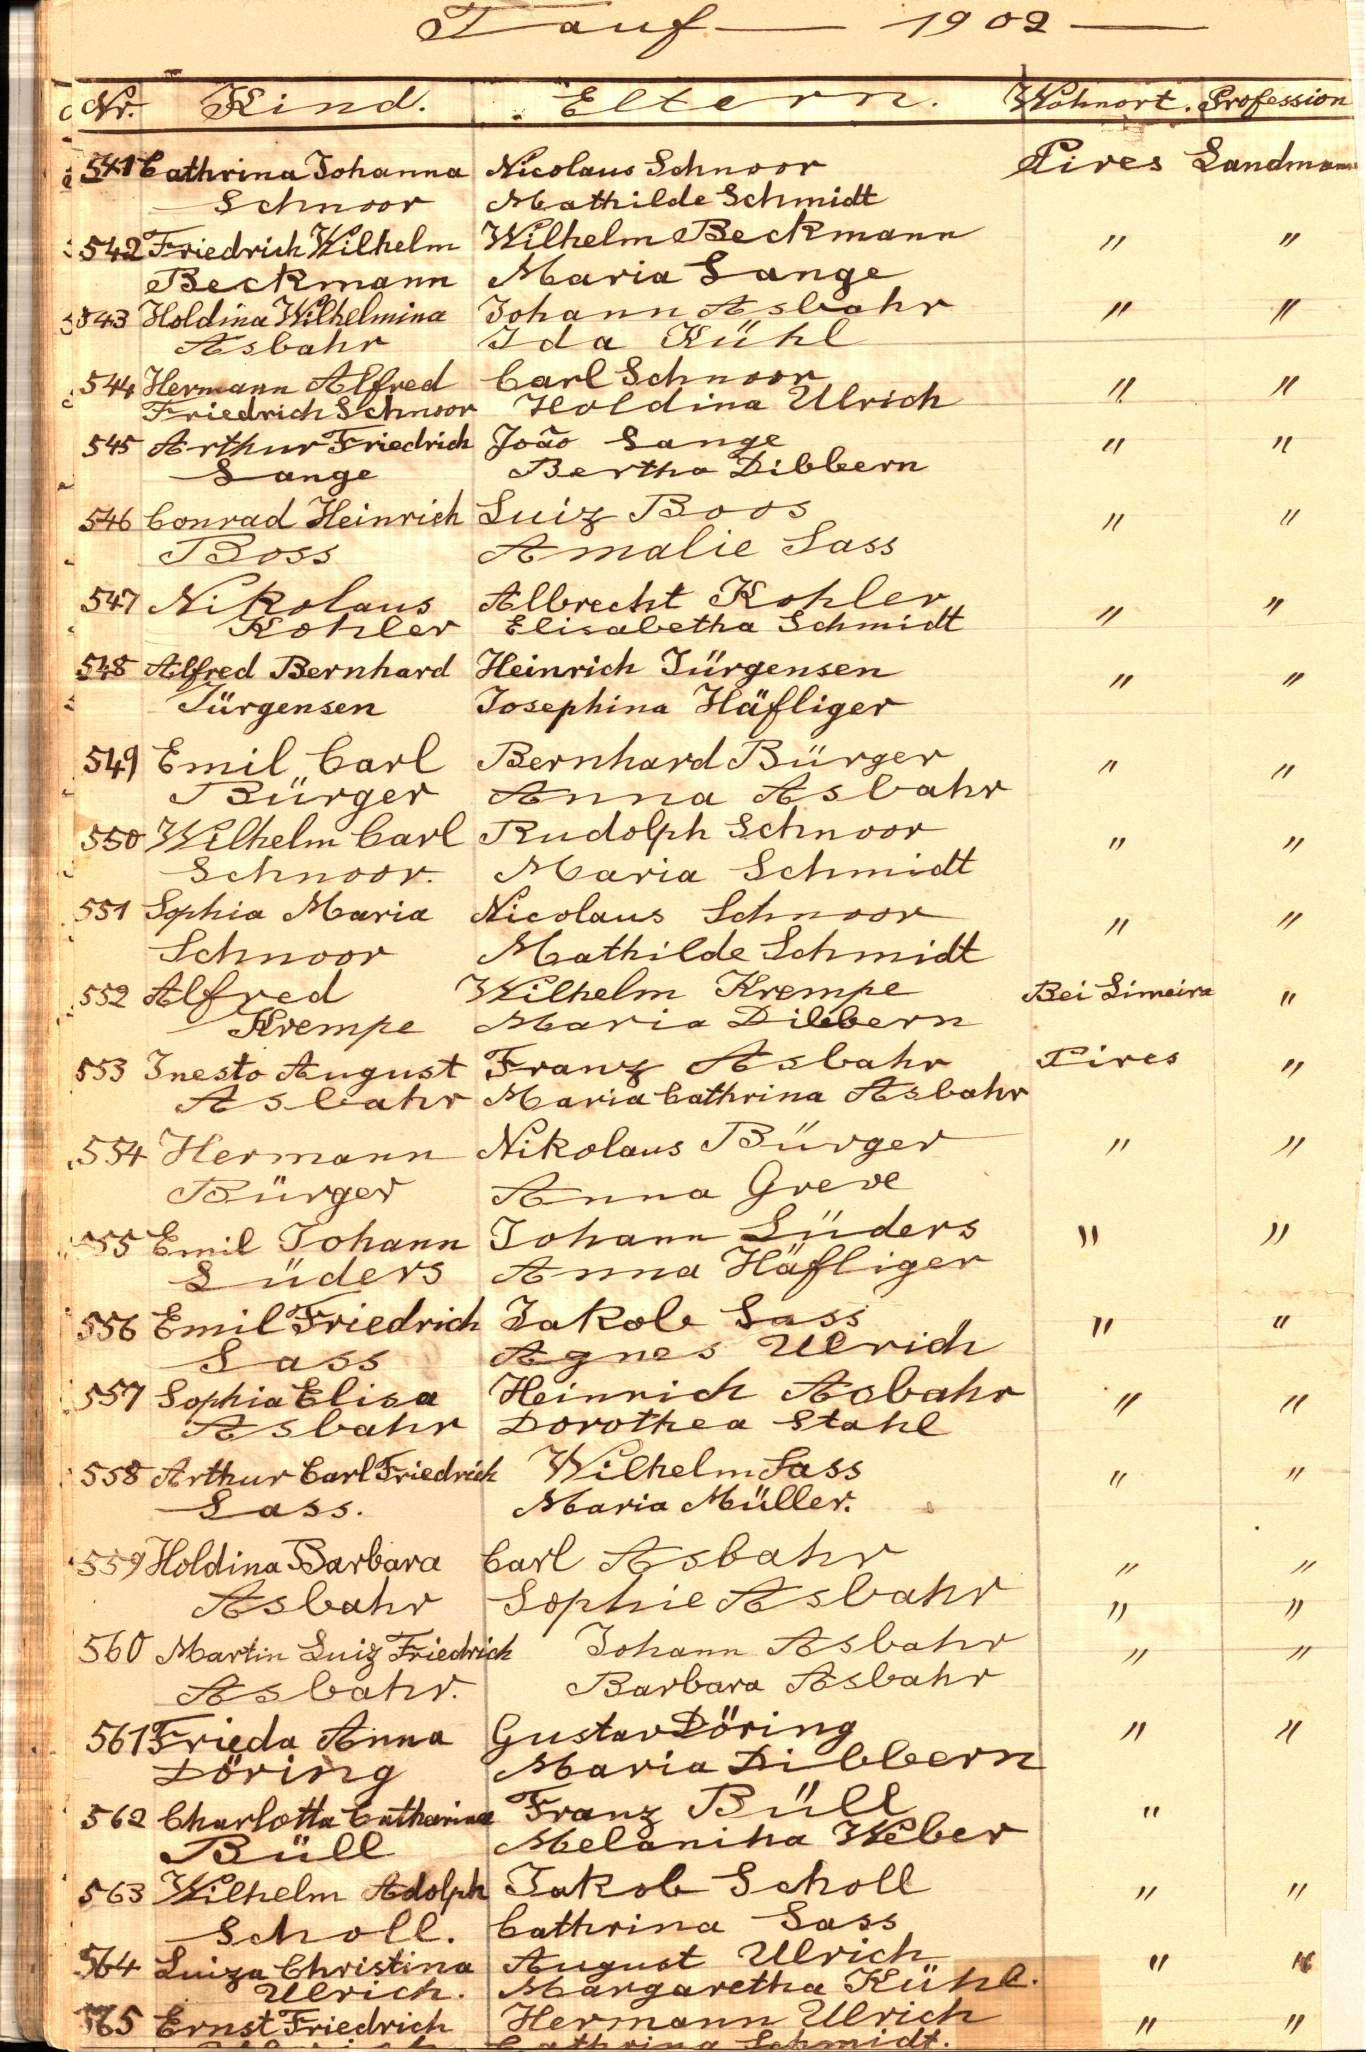 Tauf — 1902 —
Nr. Kind. Eltern. Wohnort. Profession
541 Cathrina Johanna Nicolaus Schnoor Pires Landmann
Schnoor Mathilde Schmidt
542 Friedrich Wilhelm Wilhelm Beckmann " "
Beckmann Maria Lange
543 Holdina Wilhelmina Johann Asbahr " "
Asbahr Ida Kühl
544 Hermann Alfred Carl Schnoor " "
Friedrich Schnoor Holdina Ulrich
545 Arthur Friedrich João Lange " "
Lange Bertha Dibbern
546 Conrad Heinrich Luiz Boos " "
Boss Amalie Sass
547 Nikolaus Albrecht Kohler " "
Kohler Elisabetha Schmidt
548 Alfred Bernhard Heinrich Jürgensen " "
Jürgensen Josephina Häfliger
549 Emil Carl Bernhard Bürger " "
Bürger Anna Asbahr
550 Wilhelm Carl Rudolph Schnoor " "
Schnoor. Maria Schmidt
551 Sophia Maria Nicolaus Schnoor " "
Schnoor Mathilde Schmidt
552 Alfred Wilhelm Krempe Bei Limeira "
Krempe Maria Dibbern
553 Inesto August Franz Asbahr Pires "
Asbahr Maria Cathrina Asbahr
554 Hermann Nikolaus Bürger " "
Bürger Anna Greve
555 Emil Johann Johann Lüders " "
Lüders Anna Häfliger
556 Emil Friedrich Jakob Sass " "
Sass Agnes Ulrich
557 Sophia Elisa Heinrich Asbahr " "
Asbahr Dorothea Stahl
558 Arthur Carl Friedrich Wilhelm Sass " "
Sass. Maria Müller.
559 Holdina Barbara Carl Asbahr " "
Asbahr Sophie Asbahr " "
560 Martin Luiz Friedrich Johann Asbahr " "
Asbahr. Barbara Asbahr
561 Frieda Anna Gustav Döring " "
Döring Maria Dibbern
562 Charlotta Catharina Franz Büll "
Büll Melaniha Weber
563 Wilhelm Adolph Jakob Scholl " "
Scholl. Cathrina Sass
564 Luiza Christina August Ulrich " "
Ulrich. Margaretha Kühl.
565 Ernst Friedrich Hermann Ulrich " "
Ulrich Cathrina Schmidt.